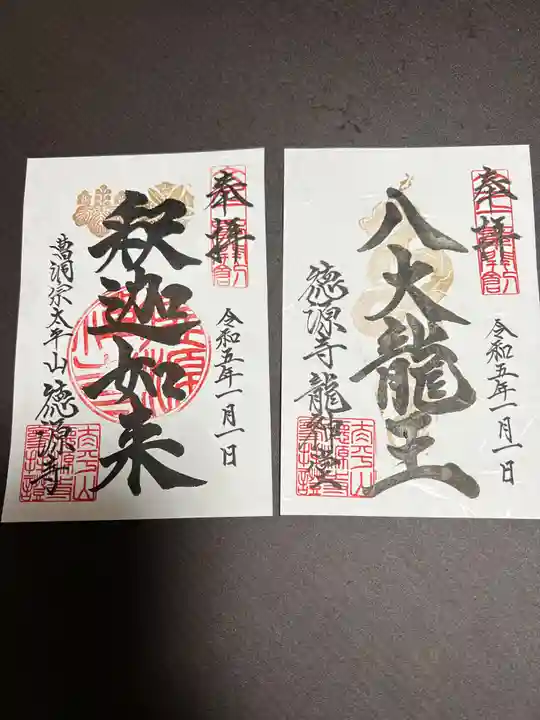 奉拝
令和五年一月一日
釈迦如来
曹洞宗太平山
徳源寺
奉拝
令和五年一月一日
八大龍王
徳源寺龍神堂
太平山